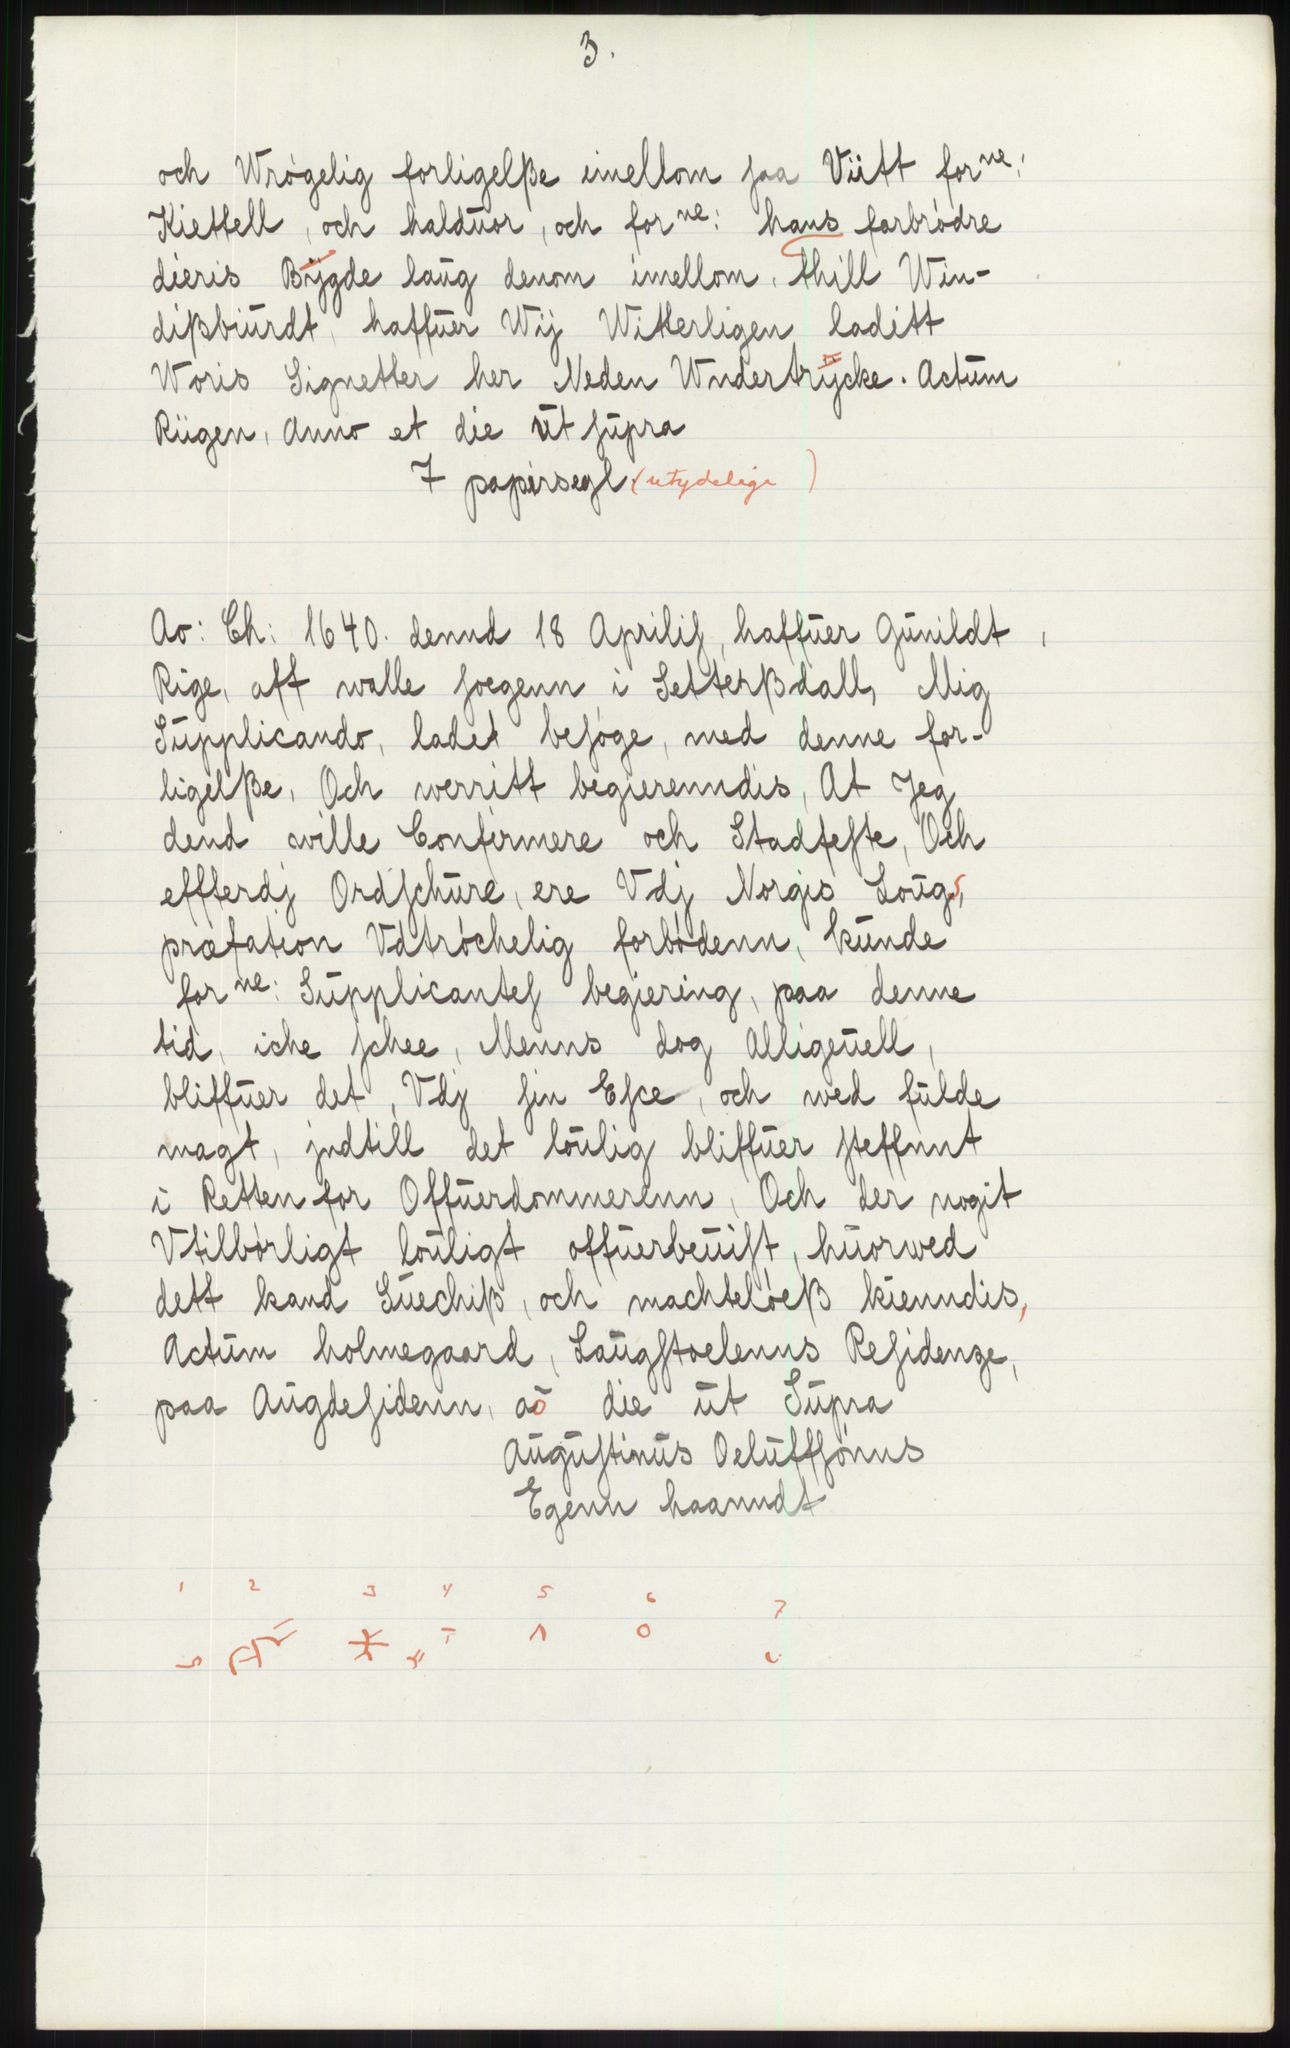 3.
och Wrøgelig forligelße imellom saa Viitt forne:
Kiettell, och halduor, och forne: hans farbrødre
dieris Bÿgde laug denom imellom, thill Win-
dißbiurdt, haffuer Wij Witterligen laditt
Woris Signetter her Neden Wndertrÿcke. Actum
Riigen, Anno et die ut supra
7 papirsegl (utydelige)
Ao: Ch: 1640. dennd 18 Aprilis, haffuer Gunildt
Rige, aff walle soegenn i Setterßdall, Mig
Supplicando, ladet besøge, med denne for-
ligelße, Och werritt begierenndis, At Jeg
dend wille Confirmere och Stadfeste, Och
effterdj Ordschure, ere Vdj Norgis Lougs,
præfation Vdtrøchelig forbødenn, kunde
forne: Supplicantes begiering, paa denne
tid, iche schee, Menns dog Alligeuell,
bliffuer det, Vdj sin Esce, och wed fulde
magt, jndtill det loulig bliffuer steffnnt
i Retten for Offuerdommerenn, Och der nogit
Vtilbørligt louligt offuerbeuist, huorwed
dett kand Suechiß, och machteløeß kienndis,
Actum holmegaard, Laugstoelenns Residenze,
paa Augdesidenn, ao die ut Supra
Augustinus Oeluffsønns
Egenn haanndt
1 2 3 4 5 6 7